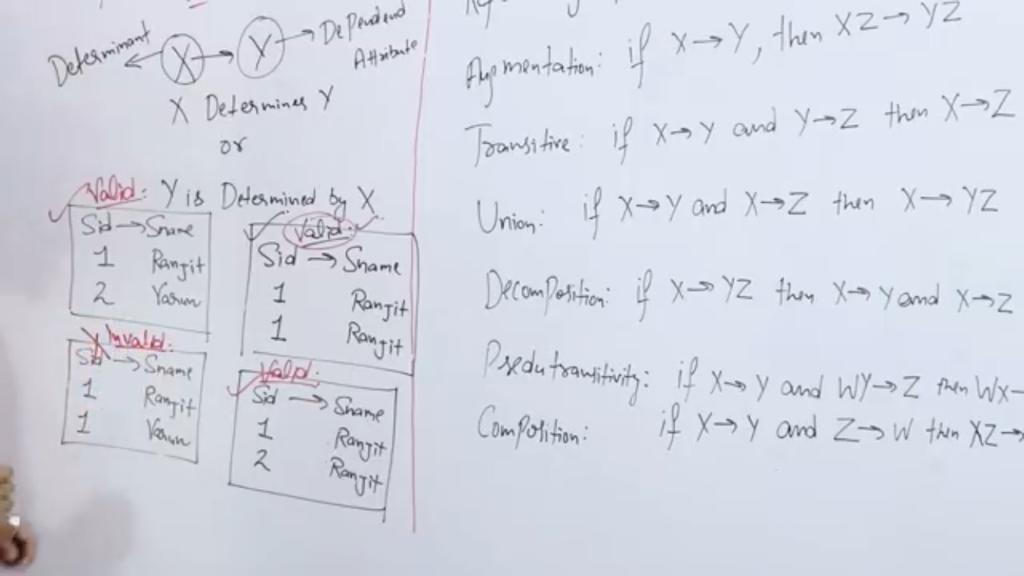 Determinant X → Y → Dependend
Attribute
X Determines Y
or
Valid: Y is Determined by X
Sid → Sname
1 Ranjit
2 Varun
Valid:
Sid → Sname
1 Ranjit
1 Ranjit
Invalid:
Sid → Sname
1 Ranjit
1 Varun
Valid:
Sid → Sname
1 Ranjit
2 Ranjit
Augmentation: if X→Y, then XZ→YZ
Transitive: if X→Y and Y→Z then X→Z
Union: if X→Y and X→Z then X→YZ
Decomposition: if X→YZ then X→Y and X→Z
Psedutransitivity: if X→Y and WY→Z then WX→
Composition: if X→Y and Z→W then XZ→